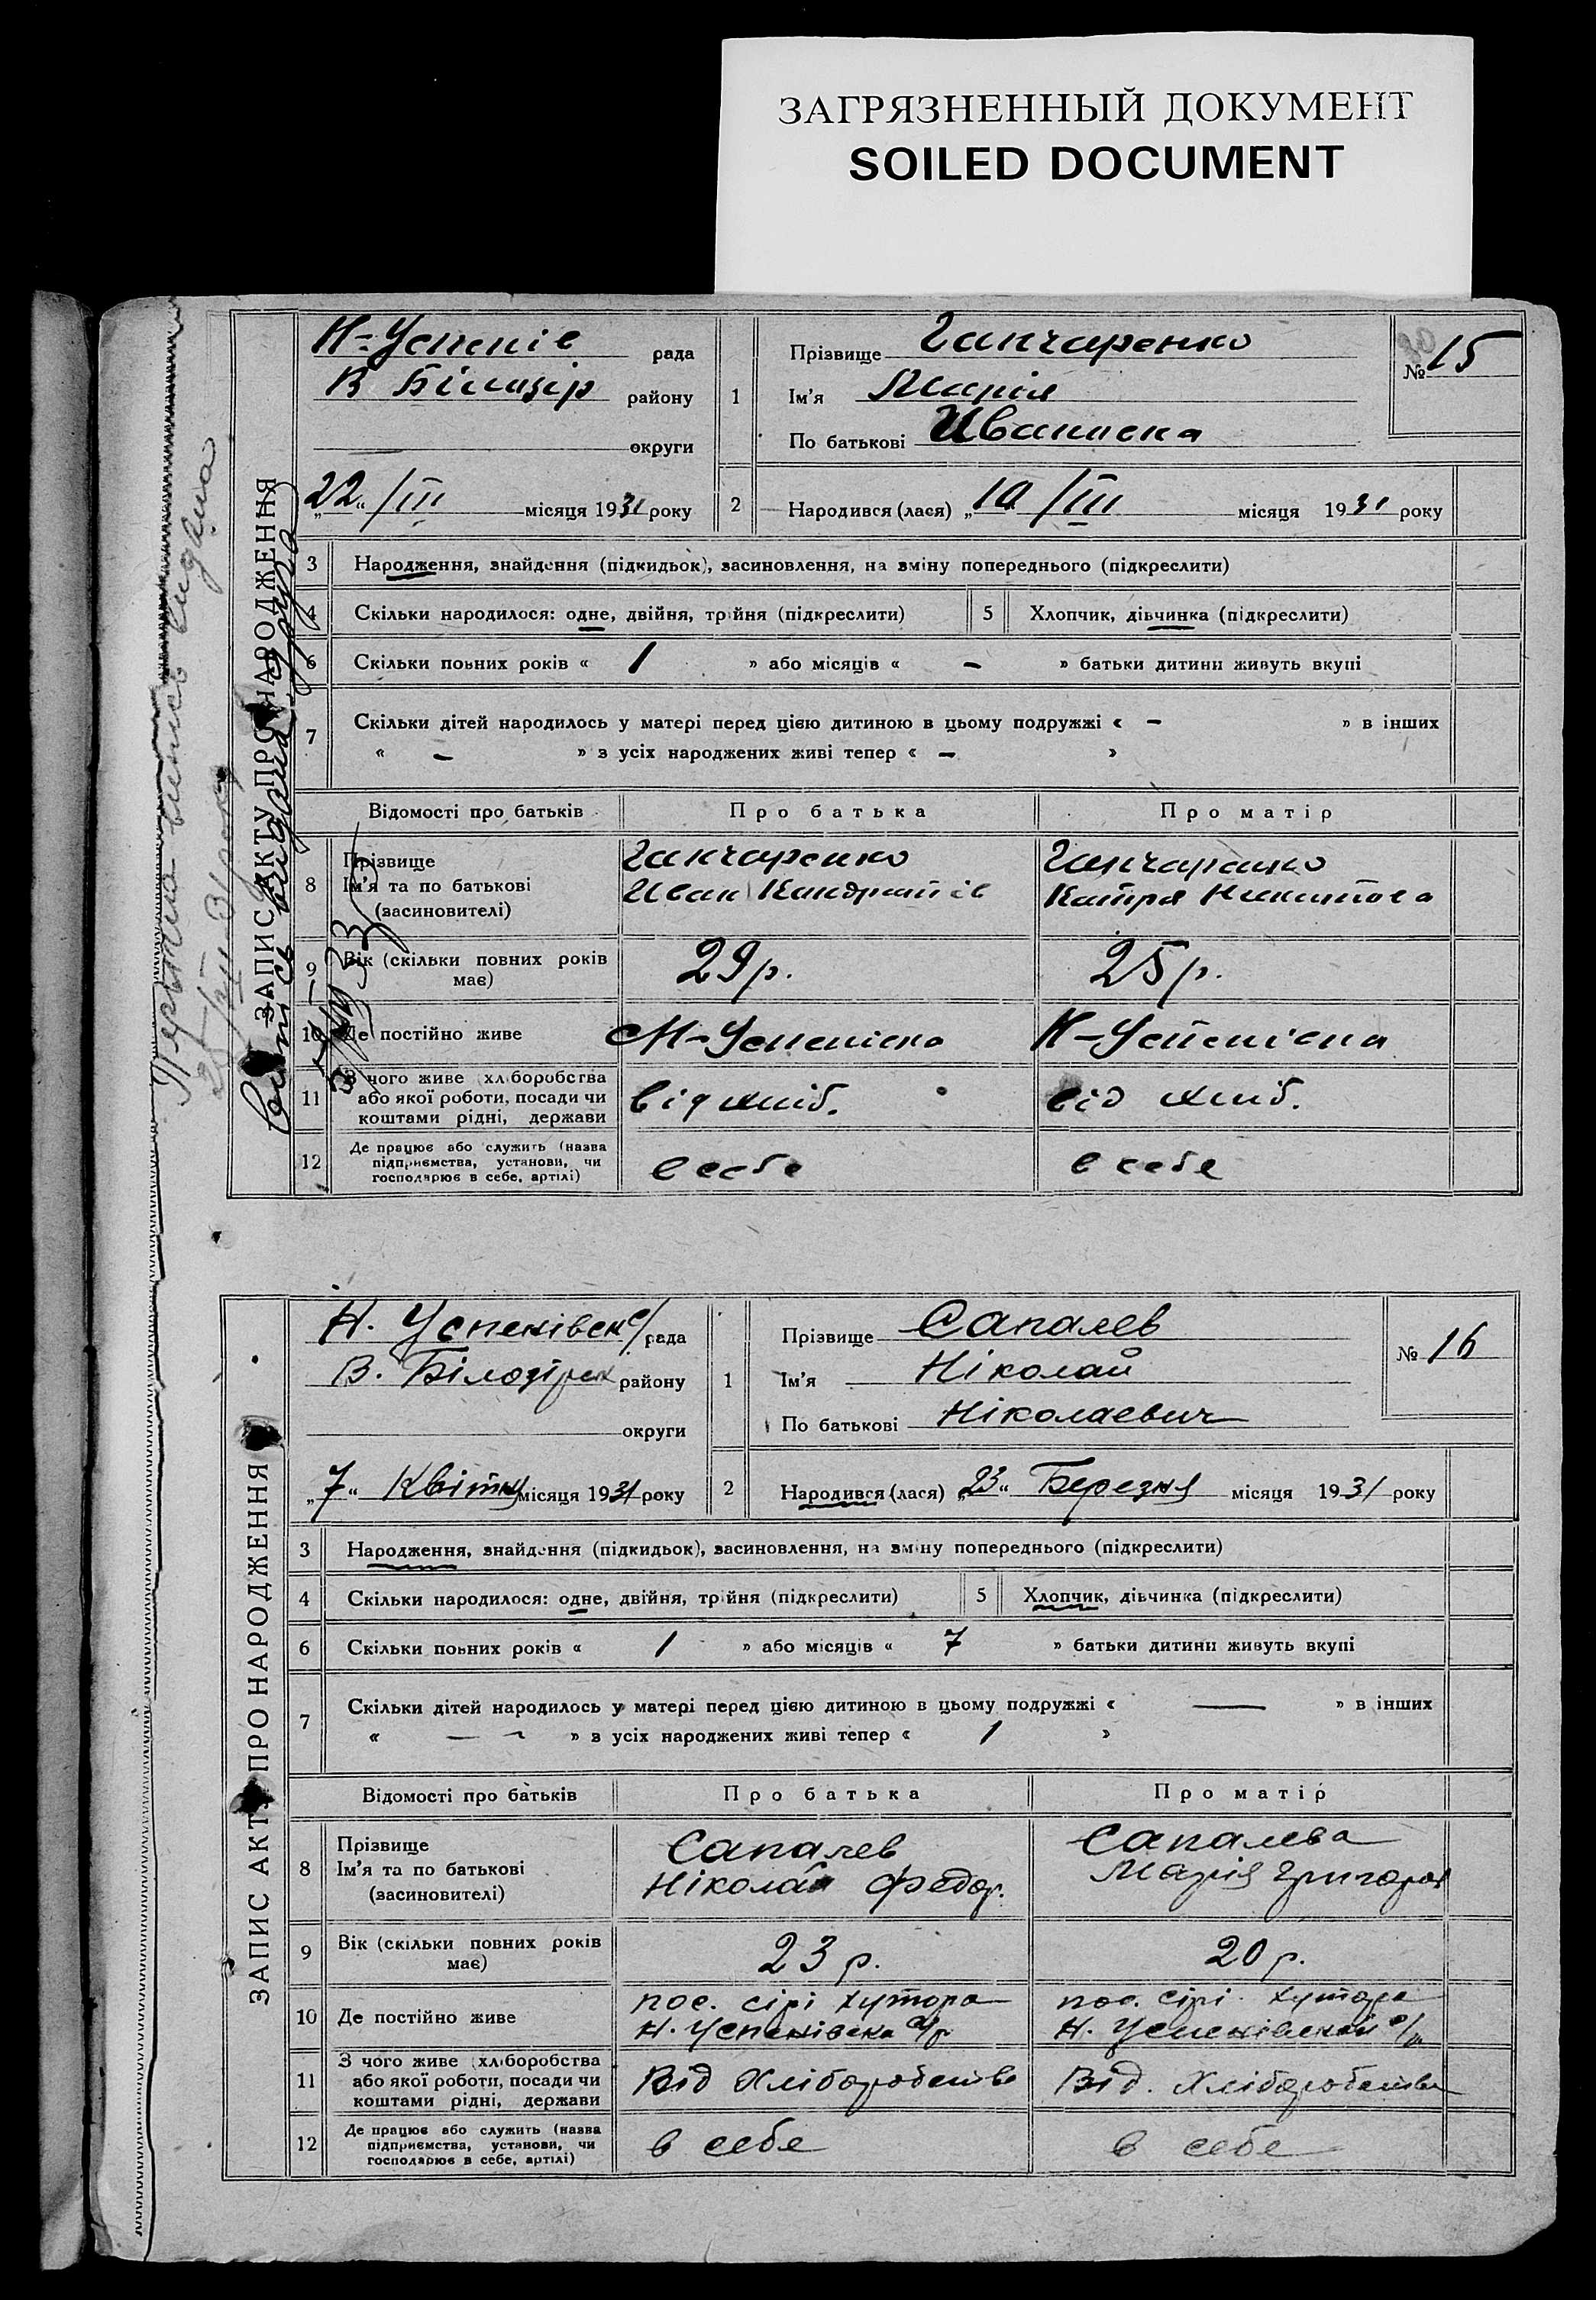 ЗАГРЯЗНЕННЫЙ ДОКУМЕНТ
SOILED DOCUMENT
ЗАПИС АКТУ ПРО НАРОДЖЕННЯ
Н-Успенів рада
В Білозір району
округи
„22“ /III місяця 1931 року
1 Прізвище Ганчаренко
Ім'я Марія
По батькові Ивановна
№ 15
2 Народився (лася) „10 /III місяця 1931 року
3 Народження, знайдення (підкидьок), засиновлення, на зміну попереднього (підкреслити)
4 Скільки народилося: одне, двійня, трійня (підкреслити) 5 Хлопчик, дівчинка (підкреслити)
6 Скільки повних років « 1 » або місяців « - » батьки дитини живуть вкупі
7 Скільки дітей народилось у матері перед цією дитиною в цьому подружжі « - » в інших
« - » з усіх народжених живі тепер « - »
Відомості про батьків Про батька Про матір
8 Прізвище Ганчаренко Ганчаренко
Ім'я та по батькові Иван Кандратів Катря Никитова
(засиновителі)
9 Вік (скільки повних років має) 29 р. 25 р.
10 Де постійно живе Н-Успенівка Н-Успенівка
11 З чого живе (хліборобства
або якої роботи, посади чи від хліб. від хліб.
коштами рідні, держави
12 Де працює або служить (назва
підприємства, установи, чи в себе в себе
господарює в себе, артілі)
Первична випись видана
Випись видана друга
ЗАПИС АКТУ ПРО НАРОДЖЕННЯ
Н. Успенівск с/рада
В. Білозірск району
округи
„7“ Квітня місяця 1931 року
1 Прізвище Сапалев
Ім'я Ніколай
По батькові Ніколаевич
№ 16
2 Народився (лася) „23“ Березня місяця 1931 року
3 Народження, знайдення (підкидьок), засиновлення, на зміну попереднього (підкреслити)
4 Скільки народилося: одне, двійня, трійня (підкреслити) 5 Хлопчик, дівчинка (підкреслити)
6 Скільки повних років « 1 » або місяців « 7 » батьки дитини живуть вкупі
7 Скільки дітей народилось у матері перед цією дитиною в цьому подружжі « — » в інших
« — » з усіх народжених живі тепер « 1 »
Відомості про батьків Про батька Про матір
8 Прізвище Сапалев Сапалева
Ім'я та по батькові Ніколай Федор. Марія Григоров
(засиновителі)
9 Вік (скільки повних років має) 23 р. 20 р.
10 Де постійно живе пос. сірі хутора пос. сірі хутора
Н. Успенівска с/р Н. Успенівской с/р
11 З чого живе (хліборобства
або якої роботи, посади чи Від Хліборобства Від. Хліборобства
коштами рідні, держави
12 Де працює або служить (назва
підприємства, установи, чи в себе в себе
господарює в себе, артілі)